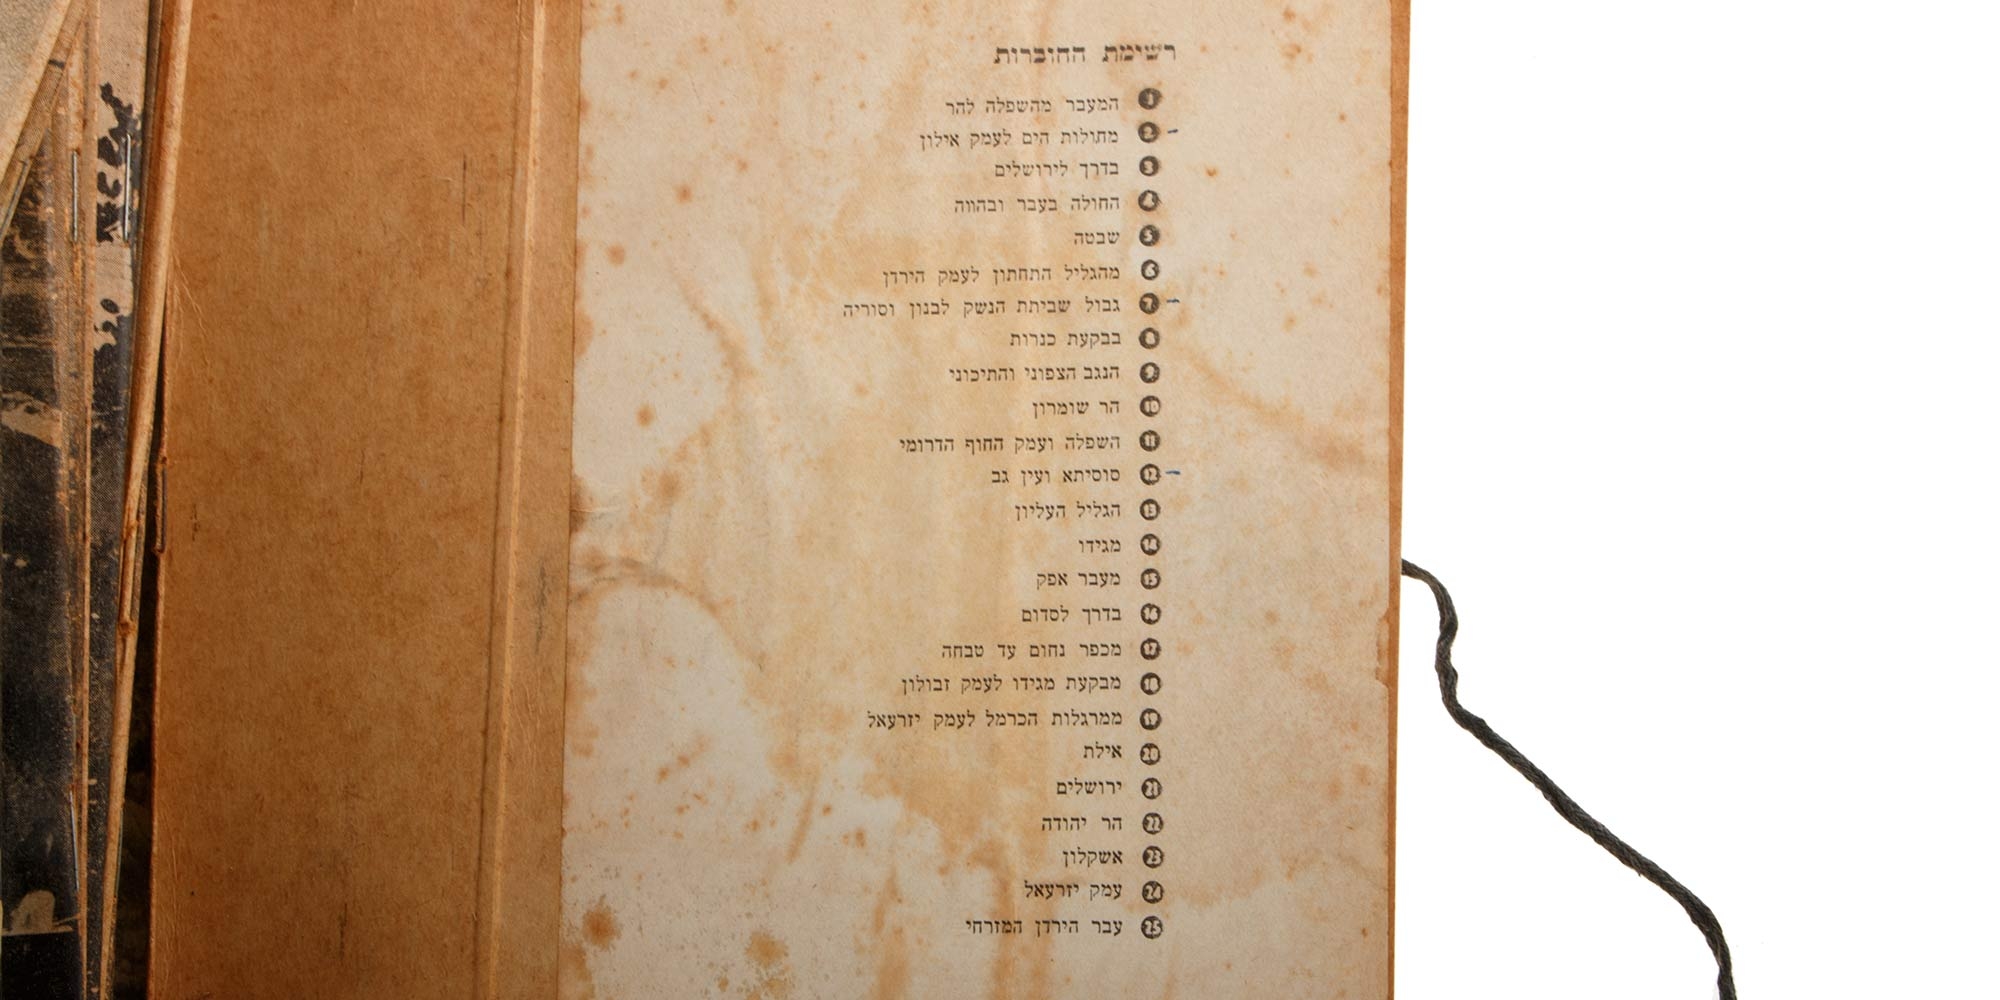 רשימת החוברות
1 המעבר מהשפלה להר
2 מחולות הים לעמק אילון
3 בדרך לירושלים
4 החולה בעבר ובהווה
5 שבטה
6 מהגליל התחתון לעמק הירדן
7 גבול שביתת הנשק לבנון וסוריה
8 בבקעת כנרות
9 הנגב הצפוני והתיכוני
10 הר שומרון
11 השפלה ועמק החוף הדרומי
12 סוסיתא ועין גב
13 הגליל העליון
14 מגידו
15 מעבר אפק
16 בדרך לסדום
17 מכפר נחום עד טבחה
18 מבקעת מגידו לעמק זבולון
19 ממרגלות הכרמל לעמק יזרעאל
20 אילת
21 ירושלים
22 הר יהודה
23 אשקלון
24 עמק יזרעאל
25 עבר הירדן המזרחי